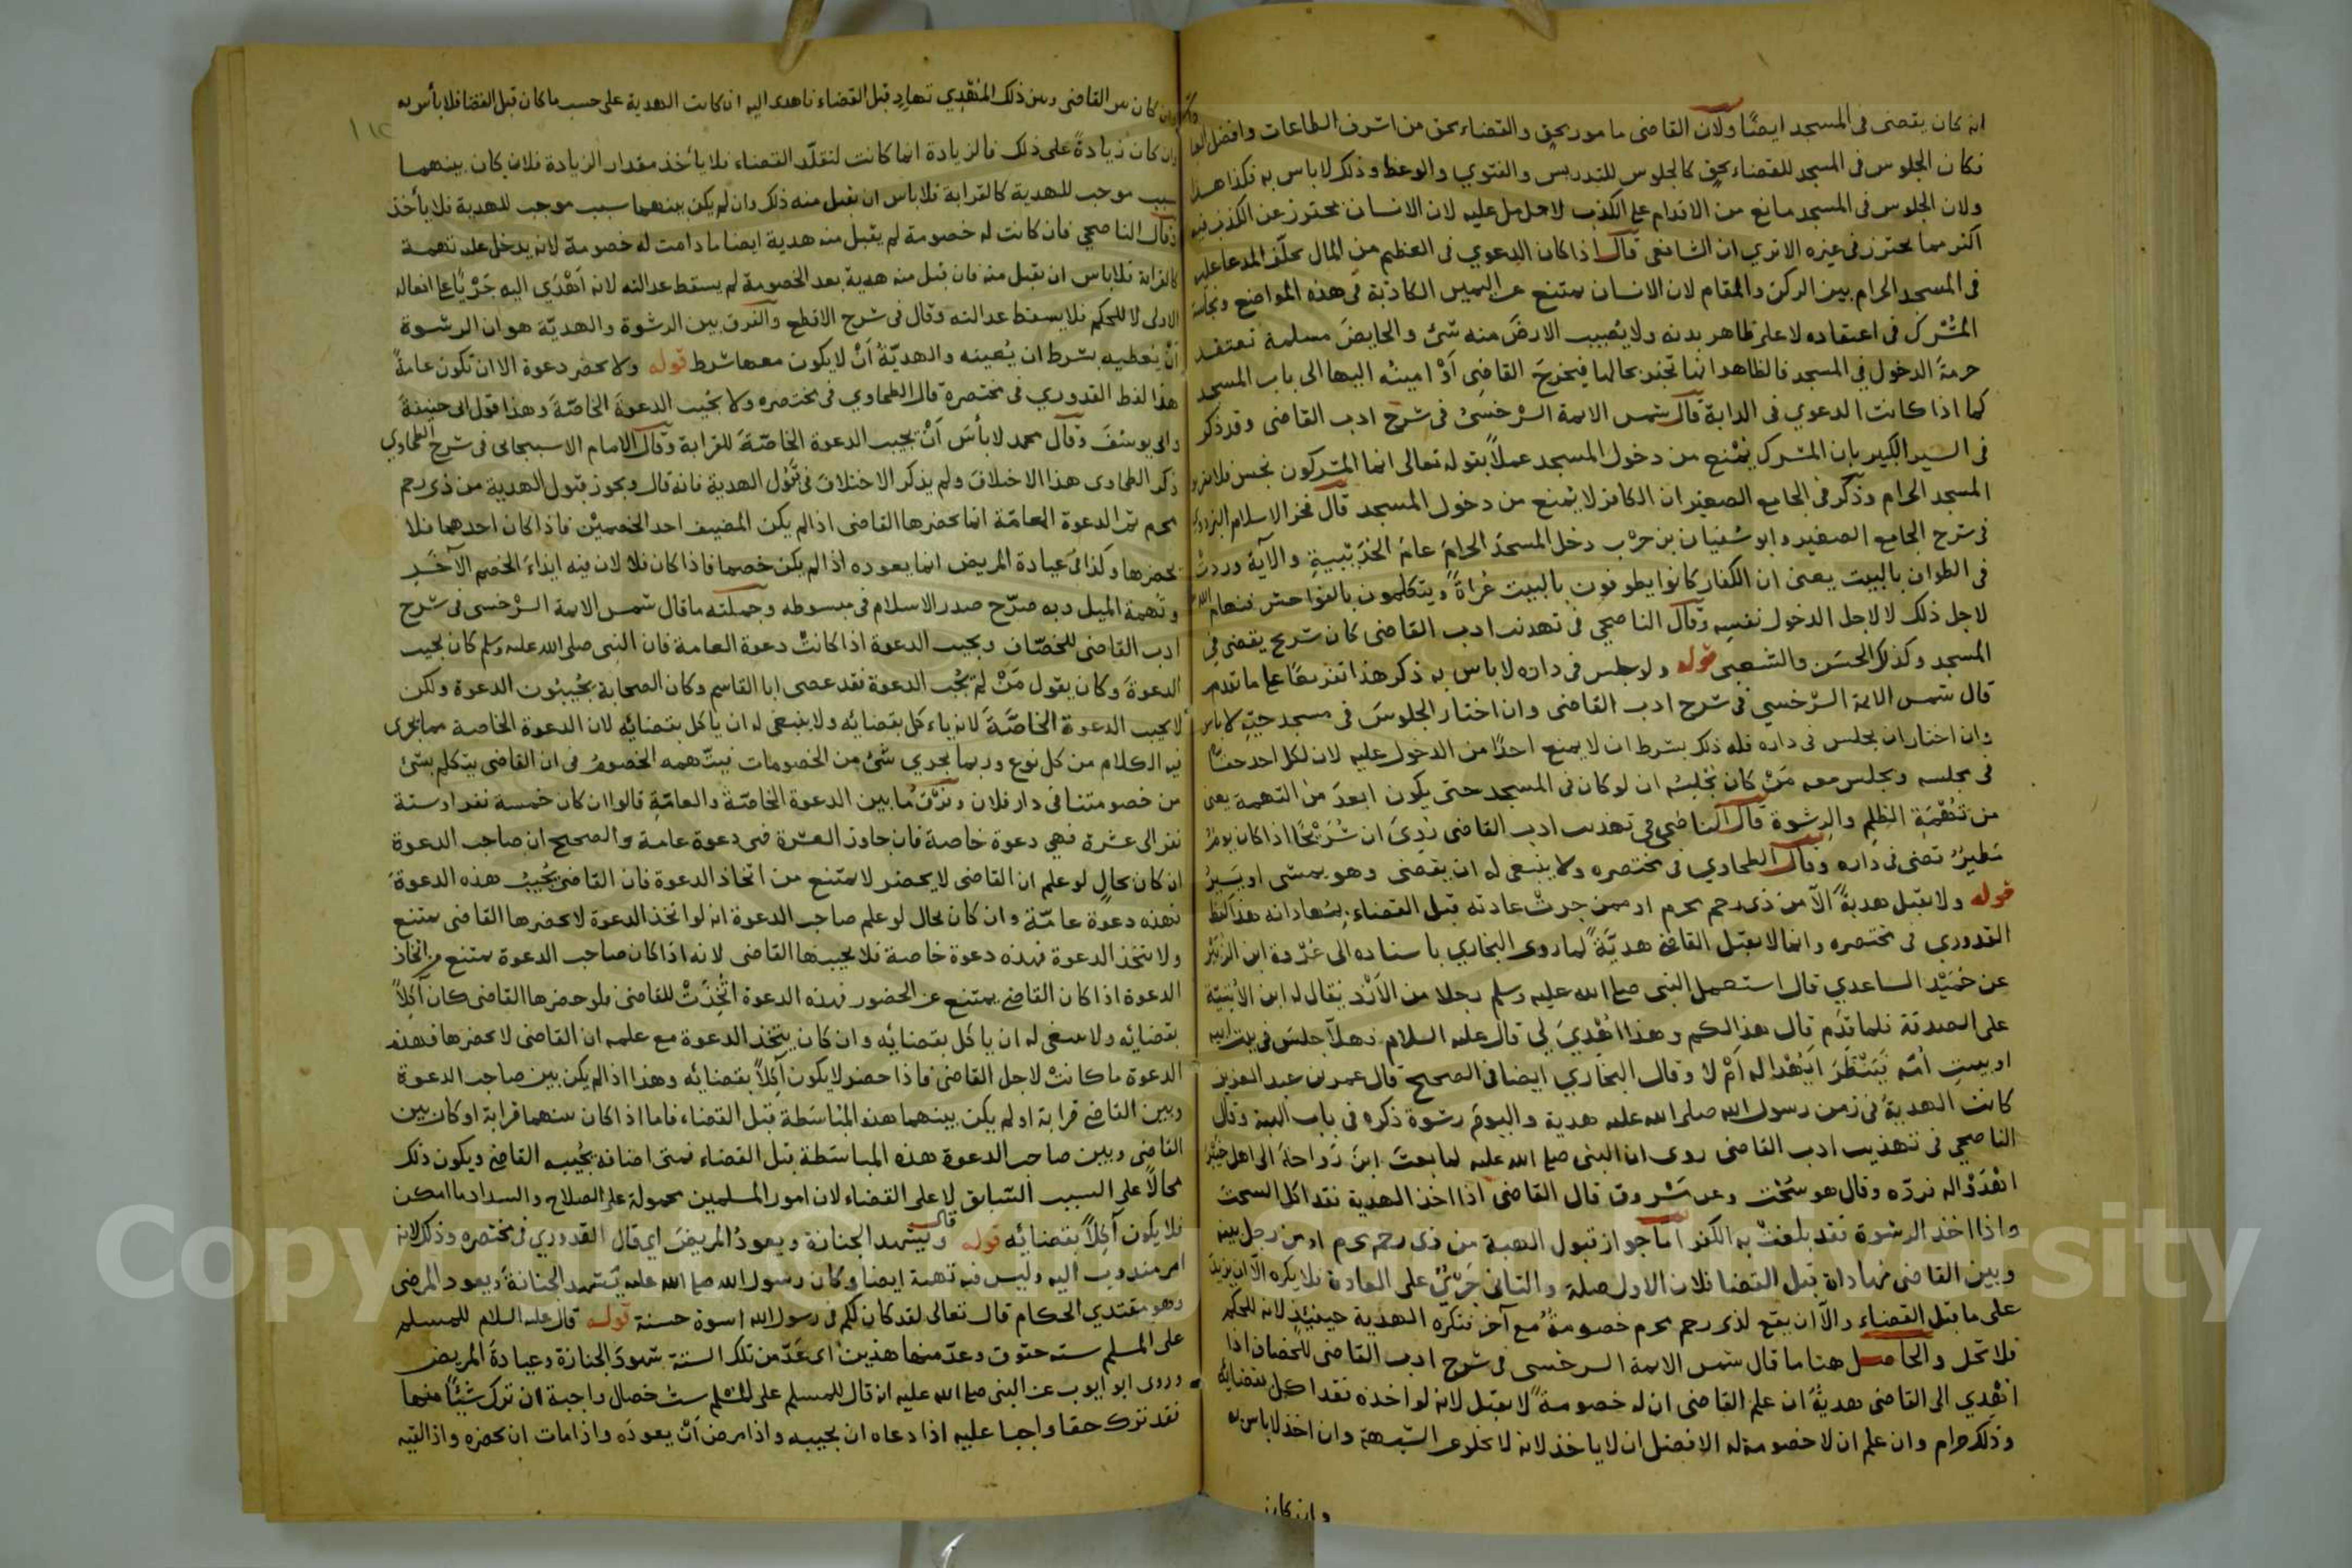 انه كان يقضى فى المسجد ايضًا ولان القاضى مامور بحق والقضاء بحق من اشرف الطاعات وافضل
فكان الجلوس فى المسجد للقضاء بحق كالجلوس للتدريس والفتوي والوعظ وذلك لاباس به فكذا هذا
ولان الجلوس فى المسجد مانع من الاقدام على الكذب لان الانسان يحترز عن الكذب فيه
اكثر مما يحترز فى غيره الاتري ان الشافعى قال اذا كان الدعوي فى العظيم من المال يحلف المدعا عليه
فى المسجد الحرام بين الركن والمقام لان الانسان يمتنع عن اليمين الكاذبة فى هذه المواضع ونجاسة
المشرك فى اعتقاده لا على ظاهر بدنه ولايصيب الارض منه شئ والحايض مسلمة تعتقد
حرمة الدخول فى المسجد فالظاهر انها تخبر بحالها فيخرج القاضى اَوْ امينُه اليها الى باب المسجد
كما اذا كانت الدعوي فى الدابة قال شمس الايمة السرخسىُ فى شرح ادب القاضى وقد ذكر
فى السير الكبير بان المشرك يمنع من دخول المسجد عملاً بقوله تعالى انما المشركون نجس فلا يقربوا
المسجد الحرام وذكر فى الجامع الصغير ان الكافر لايمنع من دخول المسجد قال فخر الاسلام البزدوي
فى شرح الجامع الصغير وابو سُفيان بن حرْب دخل المسجدَ الحرامَ عامَ الحُدَيبيةِ والآية وردتْ
فى الطواف بالبيت يعنى ان الكفار كانوا يطوفون بالبيت عُراةً ويتكلمون بالفواحش فنهاهم الله
لاجل ذلك لا لاجل الدخول نفسِه وقال الناصحي فى تهذيب ادب القاضى كان شريح يقضى فى
المسجد وكذلك الحسَن والشعبى قوله ولو جلس فى داره لاباس به ذكر هذا تفريعًا على ما تقدم
قال شمس الايمة السرخسي فى شرح ادب القاضى وان اختار الجلوسَ فى مسجد حيّه لاباس
وان اختار ان يجلس فى داره فله ذلك بشرط ان لايمنع احدًا من الدخول عليه لان لكل احد حقًا
فى مجلسه ويجلس معه مَنْ كان يجلسُ ان لو كان فى المسجد حتى يكون ابعدَ من التهمة يعنى
من تُهْمَةِ الظلم والرشوة قال الناصحى فى تهذيب ادب القاضى رُوِىَ ان شُرَيْحًا اذا كان يومُ
مَطيرٌ قضى فى داره وقال الطحاوي فى مختصره ولا ينبغى له ان يقضى وهو يمشى او يسيرُ
قوله ولايقبل هديةً الاّ من ذى رحم محرم او ممن جرتْ عادته قبل القضاء بمهاداته هذا لفظ
القدوري فى مختصره وانما لايقبل القاضى هديّةً لما روى البخاري باسناده الى عُروة ابن الزبير
عن حُمَيْد الساعدي قال استعمل النبى صلى الله عليه وسلم رجلا من الأزد يقال له ابن الأُتبيّة
على الصدقة فلما قَدِم قال هذا لكم وهذا اُهْدِيَ لِي قال عليه السلام فهلاّ جلسَ فى بيت ابيه
او بيتِ اُمّه فيَنْظُرَ اَيُهْدا له اَمْ لا وقال البخاري ايضا فى الصحيح قال عمر بن عبد العزيز
كانت الهديةُ فى زمن رسول الله صلى الله عليه هدية واليومَ رشوة ذكره فى باب الهبة وقال
الناصحي فى تهذيب ادب القاضى روى ان النبى صلى الله عليه لما بعث ابنَ رَوَاحةَ الى اهل خيبر
اهْدَوْا له فردّه وقال هو سُحْت وعن مَسْروق قال القاضى اذا اخذ الهدية فقد اكل السحتَ
واذا اخذ الرشوة فقد بلغتْ به الكفر اما جواز قبول الهدية من ذى رحم محرم او من رجل بينه
وبين القاضى مهاداة قبل القضا فلان الاول صلة والثانى جَرْىٌ على العادة فلايكره الا ان يزيدَ
على ما قبل القضاء والاّ ان يقع لذى رحم محرم خصومةٌ مع آخر فتكره الهدية حينئذٍ لانه للحكم
فلا تحل والحاصل هنا ما قال شمس الايمة السرخسى فى شرح ادب القاضى للخصاف اذا
اُهْدِي الى القاضى هديةً ان علم القاضى ان له خصومةً لايقبل لانه لو اخذه فقد اكل بقضايه
وذلك حرام وان علم ان لا خصومة له الافضل ان لا ياخذ لانه لا يخلو عن الشبهة وان اخذ لاباس به
وان كان
وان كان بين القاضى وبين ذلك المُهْدِي تهادٍ قبل القضاء فاهدى اليه ان كانت الهدية على حسب ما كان قبل القضا فلا بأس به
وان كان زيادةً على ذلك فالزيادة انما كانت لتقلّد القضاء فلا يأخذ مقدار الزيادة فلان كان بينهما
سبب موجب للهدية كالقرابة فلاباس ان يقبل منه ذلك وان لم يكن بينهما سبب موجب للهدية فلا يأخذ
وقال الناصحي فان كانت له خصومة لم يقبل منه هدية ايضا ما دامت له خصومة لانه يدخل عليه تهمة
كالقرابة فلاباس ان يقبل منه فان قبل منه هدية بعد الخصومة لم يسقط عدالته لانه اَهْدَي اليه جَرْيًا على افعاله
الاولى لا للحكم فلايسقط عدالته وقال فى شرح الاقطع والفرق بين الرشوة والهديّة هو ان الرشوة
اَنْ يُعطيه بشرط ان يُعينه والهديّةُ اَنْ لا يكون معها شرط قوله ولا يحضر دعوة الا ان تكون عامةً
هذا لفظ القدوري فى مختصرة قال الطحاوي فى مختصره ولا يجيب الدعوةَ الخاصّةَ وهذا قول ابى حنيفةَ
وابى يوسُفَ وقال محمد لابأسَ اَنْ يجيب الدعوة الخاصّةَ للقرابة وقال الامام الاسبيجابى فى شرح الطحاوي
ذكر الطحاوى هذا الاختلاف ولم يذكر الاختلافَ فى قَبُول الهدية فانه قال ويجوز قبول الهدية من ذى رحم
محرم ثم الدعوة العامّة انما يحضرها القاضى اذا لم يكن المضيف احد الخصميْن فاذا كان احدهما فلا
يحضرها وكذا فى عيادة المريض انما يعوده اذا لم يكن خصما فاذا كان فلا لان فيه ايذاءَ الخصم الآخَرِ
وتُهمة الميل وبه صرّح صدر الاسلام فى مبسوطه وجملته ما قال شمس الايمة السرخسى فى شرح
ادب القاضى للخصّاف ويجيب الدعوة اذا كانتْ دعوة العامة فان النبى صلى الله عليه وسلم كان يجيب
الدعوةَ وكان يقول مَنْ لم يُجُب الدعوة فقد عصى ابا القاسم وكان الصحابة يُجِيبُون الدعوة ولكن
لا يجيب الدعوة الخاصّةَ لانه ياءكل بقضائه ولا ينبغى له ان ياكل بقضائِه لان الدعوة الخاصة مما يجرى
فيه الكلام من كل نوع وربما يجري شئ من الخصومات فيتّهمه الخصومُ فى ان القاضى يتكلم بشئ
من خصومتنا فى دار فلان وفرْقُ ما بين الدعوة الخاصّةَ والعامّةِ قالوا ان كان خمسة نفر او ستة
نفر الى عشرة فهي دعوة خاصة فان جاوز العشرة فهى دعوة عامة والصحيح ان صاحب الدعوة
ان كان بحالٍ لو علم ان القاضى لايحضر لا يمتنع من اتخاذ الدعوة فان القاضى يُجيبُ هذه الدعوةَ
فهذه دعوة عامّة وان كان بحال لو علم صاحب الدعوة انه لو اتخذ الدعوة لا يحضرها القاضى يمتنع
ولا يتخذ الدعوة فهذه دعوة خاصة فلا يجيبها القاضى لانه اذا كان صاحب الدعوة يمتنع من اتخاذ
الدعوة اذا كان القاضى يمتنع عن الحضور فهذه الدعوة اتُّخِذَتْ للقاضى فلو حضرها القاضى كان آكِلاً
بقضايه ولا ينبغى له ان ياكل بقضايه وان كان يتخذ الدعوة مع علمه ان القاضى لا يحضرها فهذه
الدعوة ما كانتْ لاجل القاضى فاذا حضر لايكون آكِلاً بقضائه وهذا اذا لم يكن بين صاحب الدعوة
وبين القاضى قرابة او لم يكن بينهما هذه المُباسَطةُ قبل القضاء فاما اذا كان بينهما قرابة او كان بين
القاضى وبين صاحب الدعوة هذه المباسَطة قبل القضاء فمتى اضافه يُجيبه القاضى ويكون ذلك
مُحالاً على السبب السّابق لا على القضاء لان امور المسلمين محمولة على الصلاح والسداد ما امكن
فلا يكون آكِلاً بقضائِه قوله قال ويَشهد الجنازة ويعودُ المريضَ اى قال القدوري فى مختصره وذلك لانه
امر مندوب اليه وليس فيه تهمة ايضا وكان رسول الله صلى الله عليه يَشهد الجنازةَ ويعود المرضى
وهو مقتدي الحكام قال تعالى لقد كان لكم فى رسول الله اسوة حسنة قوله قال عليه السلام للمسلم
على المسلم ستة حقوق وعدّ منها هذين اى عَدّ من تلك الستة شهودَ الجنازة وعيادةَ المريض
وروى ابو ايوب عن النبى صلى الله عليه انه قال للمسلم على المُسْلم ستُ خصال واجبة ان ترك شيئًا منها
فقد ترك حقا واجبا عليه اذا دعاه ان يجيبه واذا مرض اَنْ يعودَه واذا مات ان يحضره واذا لقيه